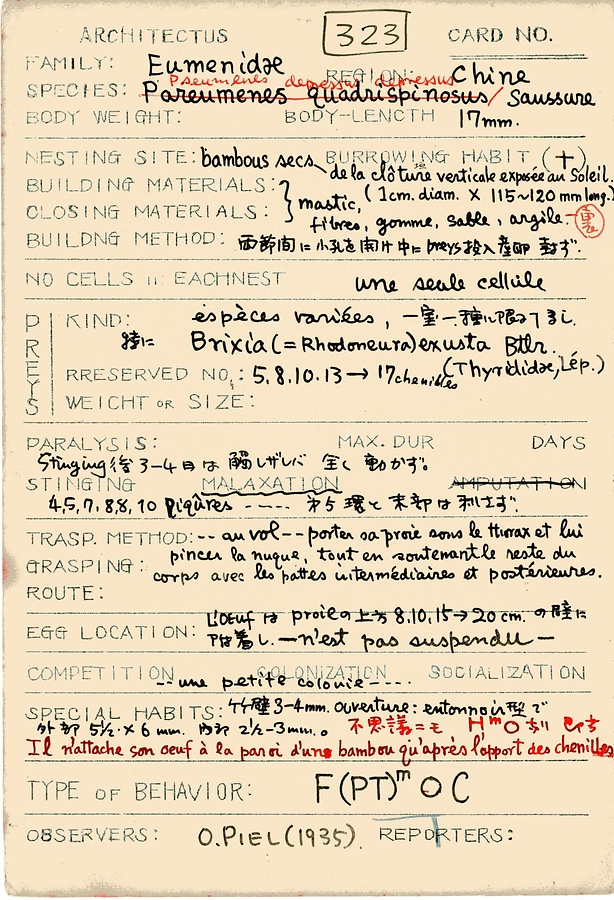 ARCHITECTUS 323 CARD NO.
FAMILY: Eumenidæ REGION: Chine
Pseumenes depressus depressus
SPECIES: Pareumenes quadrispinosus/ Saussure
BODY WEIGHT: BODY-LENGTH 17mm.
NESTING SITE: bambous secs BURROWING HABIT (+)
de la clôture verticale exposée au Soleil.
BUILDING MATERIALS: } mastic, (1cm. diam. × 115~120 mm long.)
CLOSING MATERIALS: fibres, gomme, sable, argile.
BUILDNG METHOD: 両節間に小孔を開け中にpreys投入産卵
NO CELLS IN EACHNEST une seule cellule
PREYS
KIND: espèces variées, 一室一種に限
特に Brixia (=Rhodoneura) exusta Btlr.
(Thyrididae, Lép.)
RRESERVED NO.: 5.8.10.13→17 chenilles
WEIGHT OR SIZE:
PARALYSIS: MAX. DUR DAYS
Stinging後3-4日は 全く動かず。
STINGING MALAXATION AMPUTATION
4,5,7,8,8,10 piqûres ----- 環と末部は刺さず.
TRASP. METHOD: -- au vol -- porter sa proie sous le thorax et lui
GRASPING: pincer la nuque, tout en soutenant le reste du
corps avec les pattes intermédiaires et postérieures.
ROUTE:
L'Oeuf は proieの上方 8.10,15→20 cm. の壁に
EGG LOCATION: 附着し. — n'est pas suspendu —
COMPETITION COLONIZATION SOCIALIZATION
-- une petite colonie ----
SPECIAL HABITS: 竹壁3-4mm. ouverture: entonnoir型で
外部 5½ × 6 mm. 内部 2½-3mm.。 不思議にも HᵐO
Il n'attache son oeuf à la paroi d'une bambou qu'après l'apport des chenilles
TYPE OF BEHAVIOR: F(PT)ᵐ O C
OBSERVERS: O.PIEL (1935). REPORTERS: